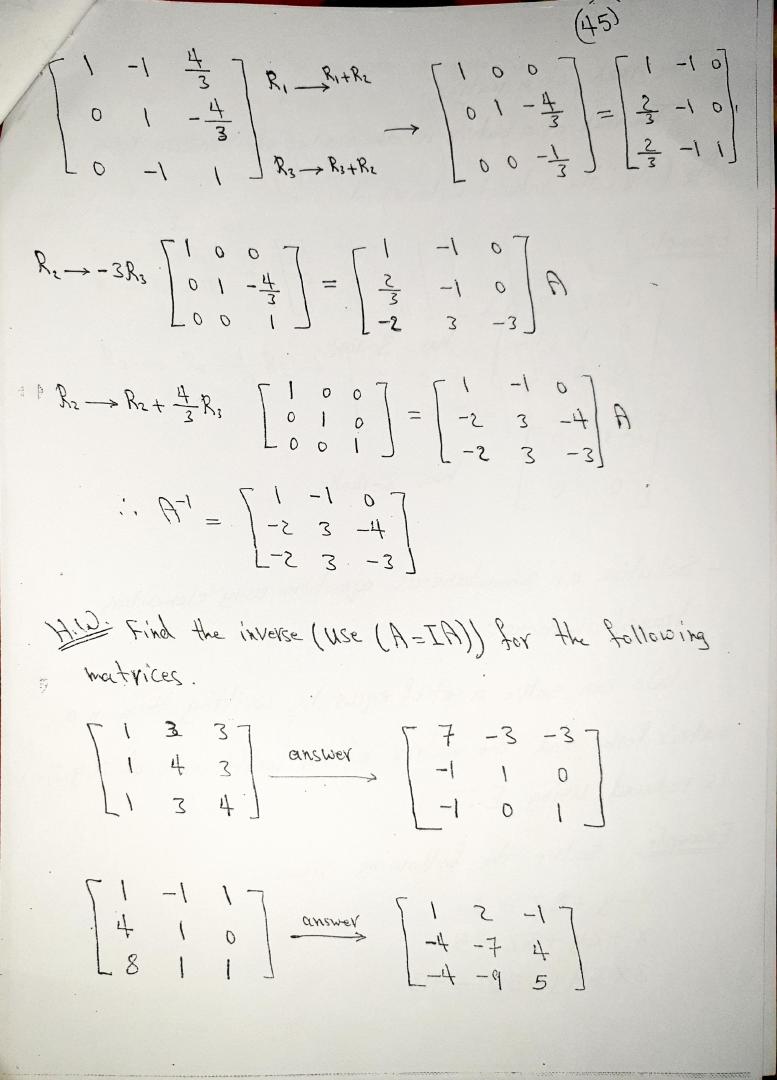 (45)
[1 -1 4/3; 0 1 -4/3; 0 -1 1] R₁ → R₁+R₂, R₃ → R₃+R₂ → [1 0 0; 0 1 -4/3; 0 0 -1/3] = [1 -1 0; 2/3 -1 0; 2/3 -1 1]
R₂ → -3R₃ [1 0 0; 0 1 -4/3; 0 0 1] = [1 -1 0; 2/3 -1 0; -2 3 -3] A
R₂ → R₂ + 4/3 R₃ [1 0 0; 0 1 0; 0 0 1] = [1 -1 0; -2 3 -4; -2 3 -3] A
∴ A⁻¹ = [1 -1 0; -2 3 -4; -2 3 -3]
H.W. Find the inverse (use (A=IA)) for the following
matrices.
[1 3 3; 1 4 3; 1 3 4] answer → [7 -3 -3; -1 1 0; -1 0 1]
[1 -1 1; 4 1 0; 8 1 1] answer → [1 2 -1; -4 -7 4; -4 -9 5]